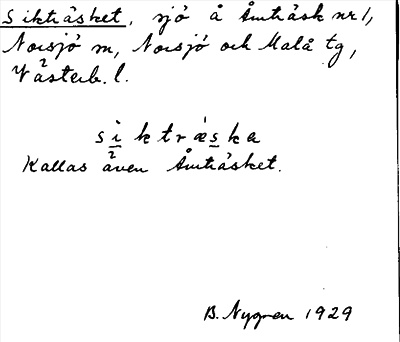 Sikträsket, sjö å Åmträsk nr 1,
Norsjö sn, Norsjö och Malå tg,
Västerb. l.
siktrǽska
Kallas även Åmträsket.
B. Nygren 1929